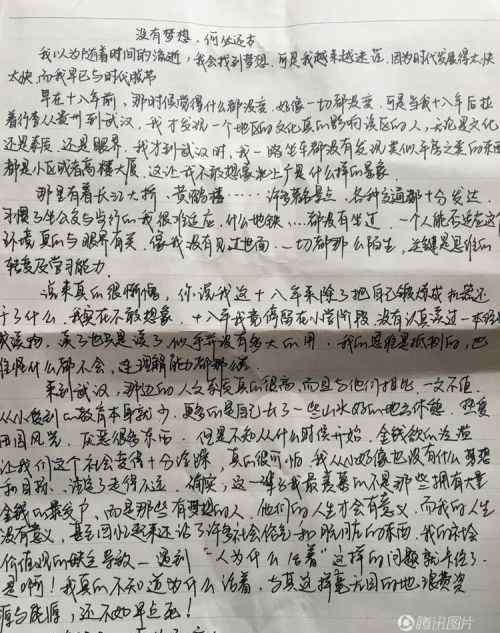 没有梦想,何必远方
我以为随着时间的流逝,我会找到梦想,可是我越来越迷茫,因为时代发展得太快
太快,而我早已与时代脱节
早在十八年前,那时候觉得什么都没变,好像一切都没变,可是当我十八年后拉
着行李从贵州到武汉,我才发现一个地区的文化真的影响该区的人,无论是文化
还是素质,还是眼界,我才到武汉时,我一路坐车都没有发现类似平房之类的东西
都是小区或者高楼大厦,这让我不敢想象北上广是什么样的景象
那里有着长江大桥,黄鹤楼……许多著名景点,各种交通都十分发达
习惯了坐公交与步行的我很难适应,什么地铁…都没有坐过,一个人能否适应这个
环境真的与眼界有关,像我没有见过世面,一切都那么陌生,关键是思维的
转变及学习能力
说来真的很惭愧,你说我这十八年来除了把自己锻炼成机器还
干了什么,我实在不敢想象,十八年我竟停留在小学阶段,没有认真读过一本
读物,读了也只是读了似乎并没有多大的用,我的思维是抵制的,也
怪什么都不会,连理解能力都那么
来到武汉,那边的人文素质真的很高,而且与他们相比,一文不值
从小受到的教育本身就少,更多的是自己去了一些山水好的地方休憩,热爱
田园风光,厌恶很多东西,但是不知从什么时候开始,金钱欲的泛滥
让我们这个社会变得十分冷漠,真的很可怕,我从小好像也没有什么梦想
和目标,注定了走得不远,确实,这一辈子我最羡慕的不是那些拥有大量
金钱的暴发户,而是那些有梦想的人,他们的人生才会有意义,而我的人生
没有意义,甚至回忆起来还沾了许多社会俗气和肮脏的东西,我的社会
价值观的缺乏导致一遇到"人为什么活着"这样的问题就卡住了
是啊!我真的不知道为什么活着,与其这样毫无目的地浪费资
源与能源,还不如早点死!
腾讯图片